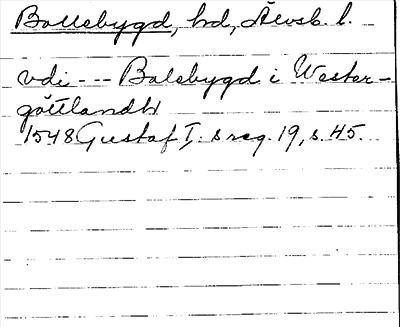 Bollebygd, hd, Älvsb. l.
vdi --- Balebygd i Wester-
göttlandh
1548 Gustaf I:s reg. 19, s. 45.